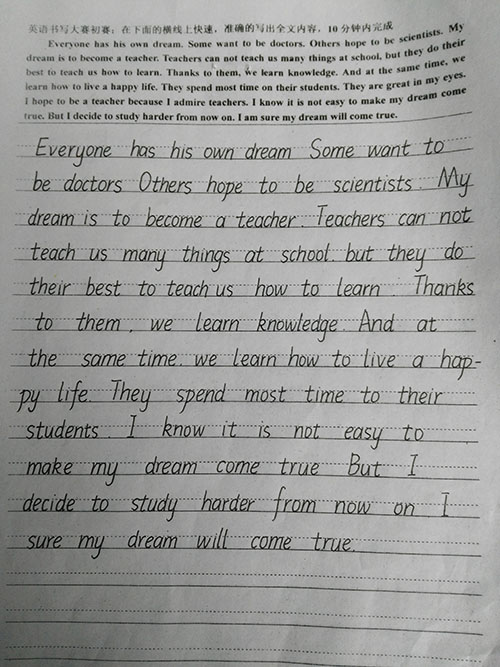 英语书写大赛初赛：在下面的横线上快速，准确的写出全文内容，10分钟内完成
Everyone has his own dream. Some want to be doctors. Others hope to be scientists. My
dream is to become a teacher. Teachers can not teach us many things at school, but they do their
best to teach us how to learn. Thanks to them, we learn knowledge. And at the same time, we
learn how to live a happy life. They spend most time on their students. They are great in my eyes.
I hope to be a teacher because I admire teachers. I know it is not easy to make my dream come
true. But I decide to study harder from now on. I am sure my dream will come true.
Everyone has his own dream Some want to
be doctors Others hope to be scientists. My
dream is to become a teacher. Teachers can not
teach us many things at school. but they do
their best to teach us how to learn. Thanks
to them, we learn knowledge. And at
the same time. we learn how to live a hap-
py life. They spend most time to their
students. I know it is not easy to
make my dream come true But I
decide to study harder from now on I
sure my dream will come true.